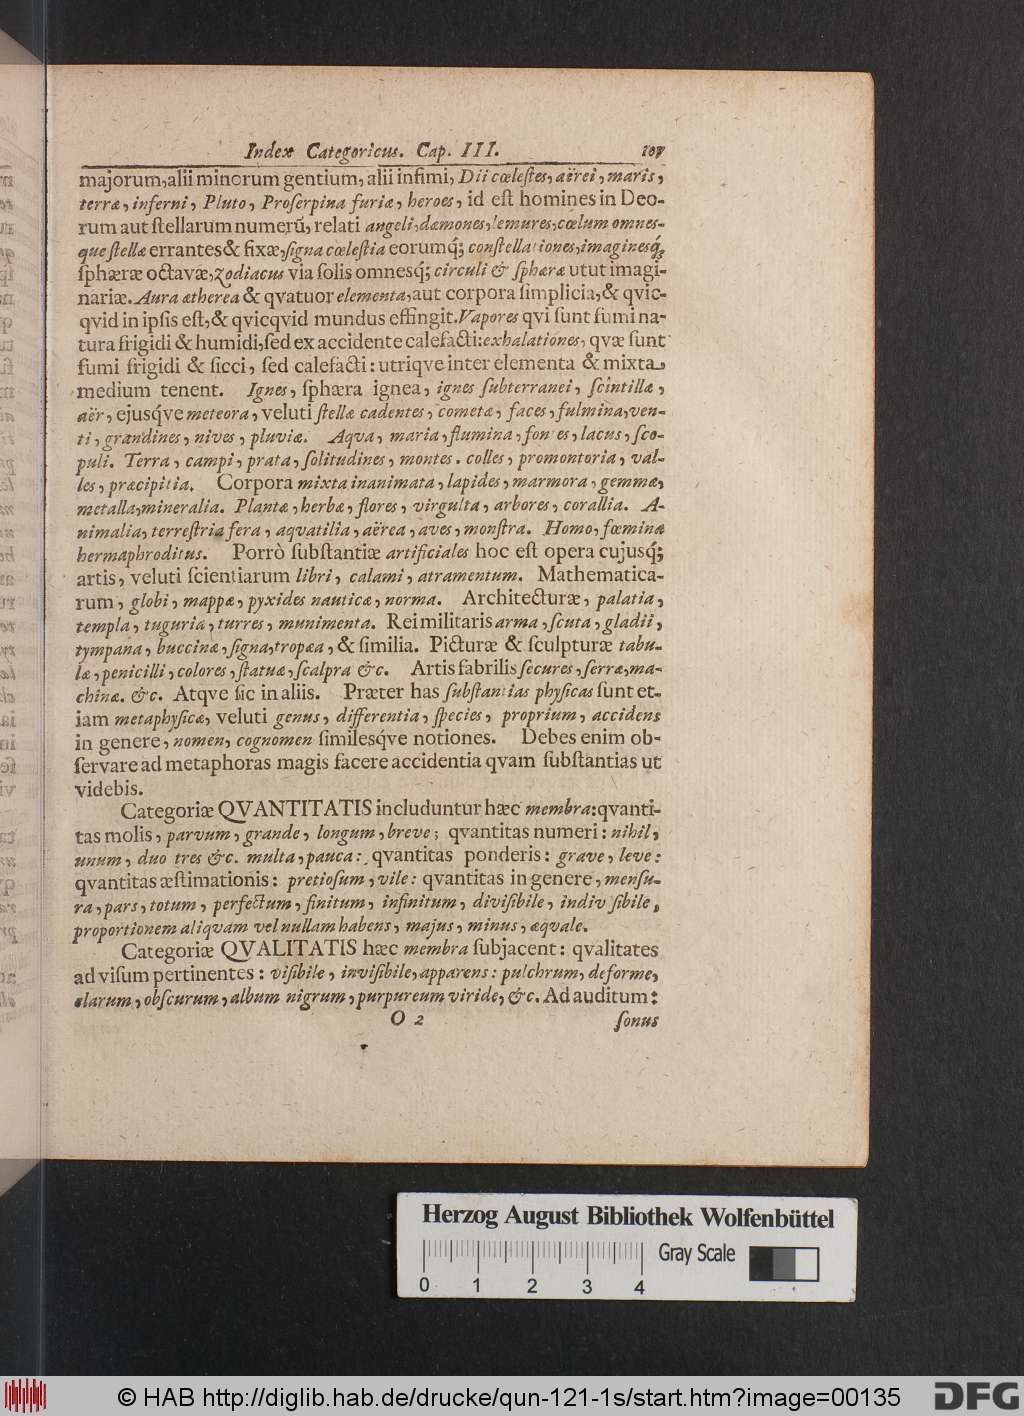 Index Categoricus. Cap. III. 107
majorum, alii minorum gentium, alii infimi, Dii cœleſtes, aërei, maris,
terræ, inferni, Pluto, Proſerpina furiæ, heroes, id eſt homines in Deo-
rum aut ſtellarum numerũ, relati angeli, dæmones, lemures, cœlum omnes-
que ſtellæ errantes & fixæ, ſigna cœleſtia eorumq́; conſtellationes, imaginesq́;
ſphæræ octavæ, zodiacus via ſolis omnesq́; circuli & ſphæræ utut imagi-
nariæ. Aura ætherea & qvatuor elementa, aut corpora ſimplicia, & qvic-
qvid in ipſis eſt, & qvicqvid mundus effingit. Vapores qvi ſunt fumi na-
tura frigidi & humidi, ſed ex accidente calefacti: exhalationes, qvæ ſunt
fumi frigidi & ſicci, ſed calefacti: utriqve inter elementa & mixta
medium tenent. Ignes, ſphæra ignea, ignes ſubterranei, ſcintillæ,
aër, ejusq́ve meteora, veluti ſtellæ cadentes, cometæ, faces, fulmina, ven-
ti, grandines, nives, pluviæ. Aqva, maria, flumina, fontes, lacus, ſco-
puli. Terra, campi, prata, ſolitudines, montes. colles, promontoria, val-
les, præcipitia. Corpora mixta inanimata, lapides, marmora, gemmæ,
metalla, mineralia. Plantæ, herbæ, flores, virgulta, arbores, corallia. A-
nimalia, terreſtria fera, aquatilia, aërea, aves, monſtra. Homo, fœmina
hermaphroditus. Porrò ſubſtantiæ artificiales hoc eſt opera cujusq́;
artis, veluti ſcientiarum libri, calami, atramentum. Mathematica-
rum, globi, mappæ, pyxides nauticæ, norma. Architecturæ, palatia,
templa, tuguria, turres, munimenta. Rei militaris arma, ſcuta, gladii,
tympana, buccinæ, ſigna, tropæa, & ſimilia. Picturæ & ſculpturæ tabu-
læ, penicilli, colores, ſtatuæ, ſcalpra &c. Artis fabrilis ſecures, ſerræ, ma-
chinæ. &c. Atqve ſic in aliis. Præter has ſubſtantias phyſicas ſunt et-
iam metaphyſicæ, veluti genus, differentia, ſpecies, proprium, accidens
in genere, nomen, cognomen ſimilesq́ve notiones. Debes enim ob-
ſervare ad metaphoras magis facere accidentia qvam ſubſtantias ut
videbis.
Categoriæ QVANTITATIS includuntur hæc membra: qvanti-
tas molis, parvum, grande, longum, breve; qvantitas numeri: nihil,
unum, duo tres &c. multa, pauca: qvantitas ponderis: grave, leve:
qvantitas æſtimationis: pretioſum, vile: qvantitas in genere, menſu-
ra, pars, totum, perfectum, finitum, infinitum, diviſibile, indiviſibile,
proportionem aliquam vel nullam habens, majus, minus, æquale.
Categoriæ QVALITATIS hæc membra ſubjacent: qvalitates
ad viſum pertinentes: viſibile, inviſibile, apparens: pulchrum, deforme,
clarum, obſcurum, album nigrum, purpureum viride, &c. Ad auditum:
O 2 ſonus
Herzog August Bibliothek Wolfenbüttel
Gray Scale
0 1 2 3 4
© HAB http://diglib.hab.de/drucke/qun-121-1s/start.htm?image=00135 DFG